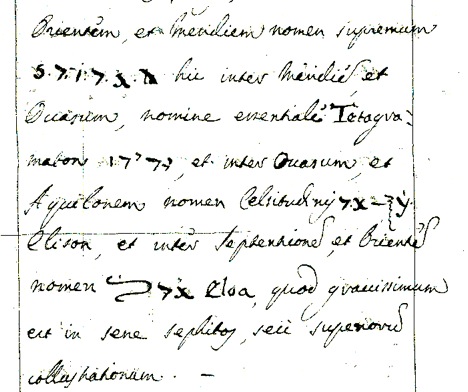 Orientem, et Meridiem nomen supremum
hic inter Meridiē, et
Occasum, nomine essentiale Tetagra:
maton et inter Occasum, et
Aquilonem nomen Celsitudinis
Elison, et inter Septentrionē, et Orientē
nomen Eloa, quod gravissimum
est in sene sephitos, seu superiorū
collustrationum. –